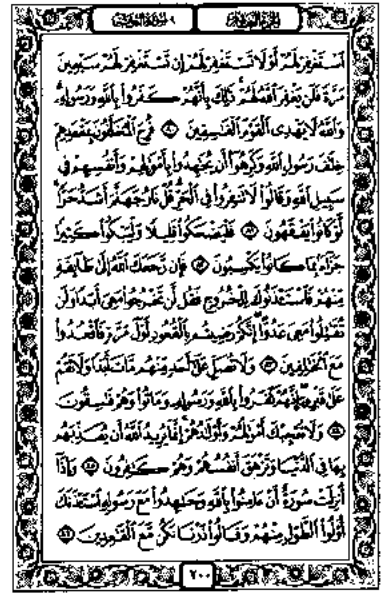 الجزء العاشر
٩ سورة التوبة
ٱسۡتَغۡفِرۡ لَهُمۡ أَوۡ لَا تَسۡتَغۡفِرۡ لَهُمۡ إِن تَسۡتَغۡفِرۡ لَهُمۡ سَبۡعِينَ
مَرَّةٗ فَلَن يَغۡفِرَ ٱللَّهُ لَهُمۡۚ ذَٰلِكَ بِأَنَّهُمۡ كَفَرُواْ بِٱللَّهِ وَرَسُولِهِۦۗ
وَٱللَّهُ لَا يَهۡدِي ٱلۡقَوۡمَ ٱلۡفَٰسِقِينَ ٨٠ فَرِحَ ٱلۡمُخَلَّفُونَ بِمَقۡعَدِهِمۡ
خِلَٰفَ رَسُولِ ٱللَّهِ وَكَرِهُوٓاْ أَن يُجَٰهِدُواْ بِأَمۡوَٰلِهِمۡ وَأَنفُسِهِمۡ فِي
سَبِيلِ ٱللَّهِ وَقَالُواْ لَا تَنفِرُواْ فِي ٱلۡحَرِّۗ قُلۡ نَارُ جَهَنَّمَ أَشَدُّ حَرّٗاۚ
لَّوۡ كَانُواْ يَفۡقَهُونَ ٨١ فَلۡيَضۡحَكُواْ قَلِيلٗا وَلۡيَبۡكُواْ كَثِيرٗا
جَزَآءَۢ بِمَا كَانُواْ يَكۡسِبُونَ ٨٢ فَإِن رَّجَعَكَ ٱللَّهُ إِلَىٰ طَآئِفَةٖ
مِّنۡهُمۡ فَٱسۡتَـٔۡذَنُوكَ لِلۡخُرُوجِ فَقُل لَّن تَخۡرُجُواْ مَعِيَ أَبَدٗا وَلَن
تُقَٰتِلُواْ مَعِيَ عَدُوًّاۖ إِنَّكُمۡ رَضِيتُم بِٱلۡقُعُودِ أَوَّلَ مَرَّةٖ فَٱقۡعُدُواْ
مَعَ ٱلۡخَٰلِفِينَ ٨٣ وَلَا تُصَلِّ عَلَىٰٓ أَحَدٖ مِّنۡهُم مَّاتَ أَبَدٗا وَلَا تَقُمۡ
عَلَىٰ قَبۡرِهِۦٓۖ إِنَّهُمۡ كَفَرُواْ بِٱللَّهِ وَرَسُولِهِۦ وَمَاتُواْ وَهُمۡ فَٰسِقُونَ
٨٤ وَلَا تُعۡجِبۡكَ أَمۡوَٰلُهُمۡ وَأَوۡلَٰدُهُمۡۚ إِنَّمَا يُرِيدُ ٱللَّهُ أَن يُعَذِّبَهُم
بِهَا فِي ٱلدُّنۡيَا وَتَزۡهَقَ أَنفُسُهُمۡ وَهُمۡ كَٰفِرُونَ ٨٥ وَإِذَآ
أُنزِلَتۡ سُورَةٌ أَنۡ ءَامِنُواْ بِٱللَّهِ وَجَٰهِدُواْ مَعَ رَسُولِهِ ٱسۡتَـٔۡذَنَكَ
أُوْلُواْ ٱلطَّوۡلِ مِنۡهُمۡ وَقَالُواْ ذَرۡنَا نَكُن مَّعَ ٱلۡقَٰعِدِينَ ٨٦
٢٠٠